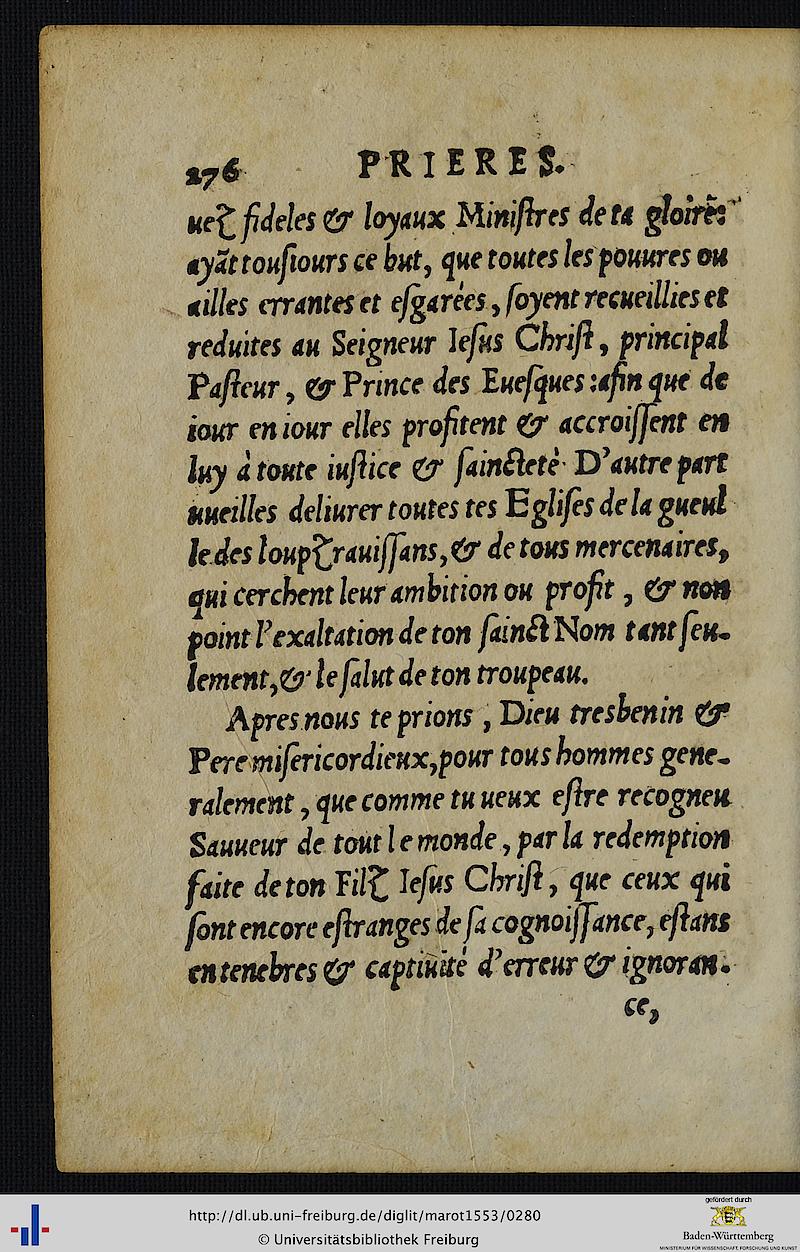 276 PRIERES.
uetʒ fideles & loyaux Miniſtres de ta gloire:
ayãt touſiours ce but, que toutes les pouures ou
ailles errantes et eſgarées, ſoyent recueillies et
reduites au Seigneur Ieſus Chriſt, principal
Paſteur, & Prince des Eueſques: afin que de
iour en iour elles profitent & accroiſſent en
luy à toute iuſtice & ſaincteté. D'autre part
uueilles deliurer toutes tes Egliſes de la gueul
le des loupʒ rauiſſans, & de tous mercenaires,
qui cerchent leur ambition ou profit, & non
point l'exaltation de ton ſainct Nom tant ſeu-
lement, & le ſalut de ton troupeau.
Apres nous te prions, Dieu tresbenin &
Pere miſericordieux, pour tous hommes gene-
ralement, que comme tu ueux eſtre recogneu
Sauueur de tout le monde, par la redemption
faite de ton Filʒ Ieſus Chriſt, que ceux qui
ſont encore eſtranges de ſa cognoiſſance, eſtans
en tenebres & captiuité d'erreur & ignoran-
ce,
http://dl.ub.uni-freiburg.de/diglit/marot1553/0280
© Universitätsbibliothek Freiburg
gefördert durch
Baden-Württemberg
MINISTERIUM FÜR WISSENSCHAFT, FORSCHUNG UND KUNST